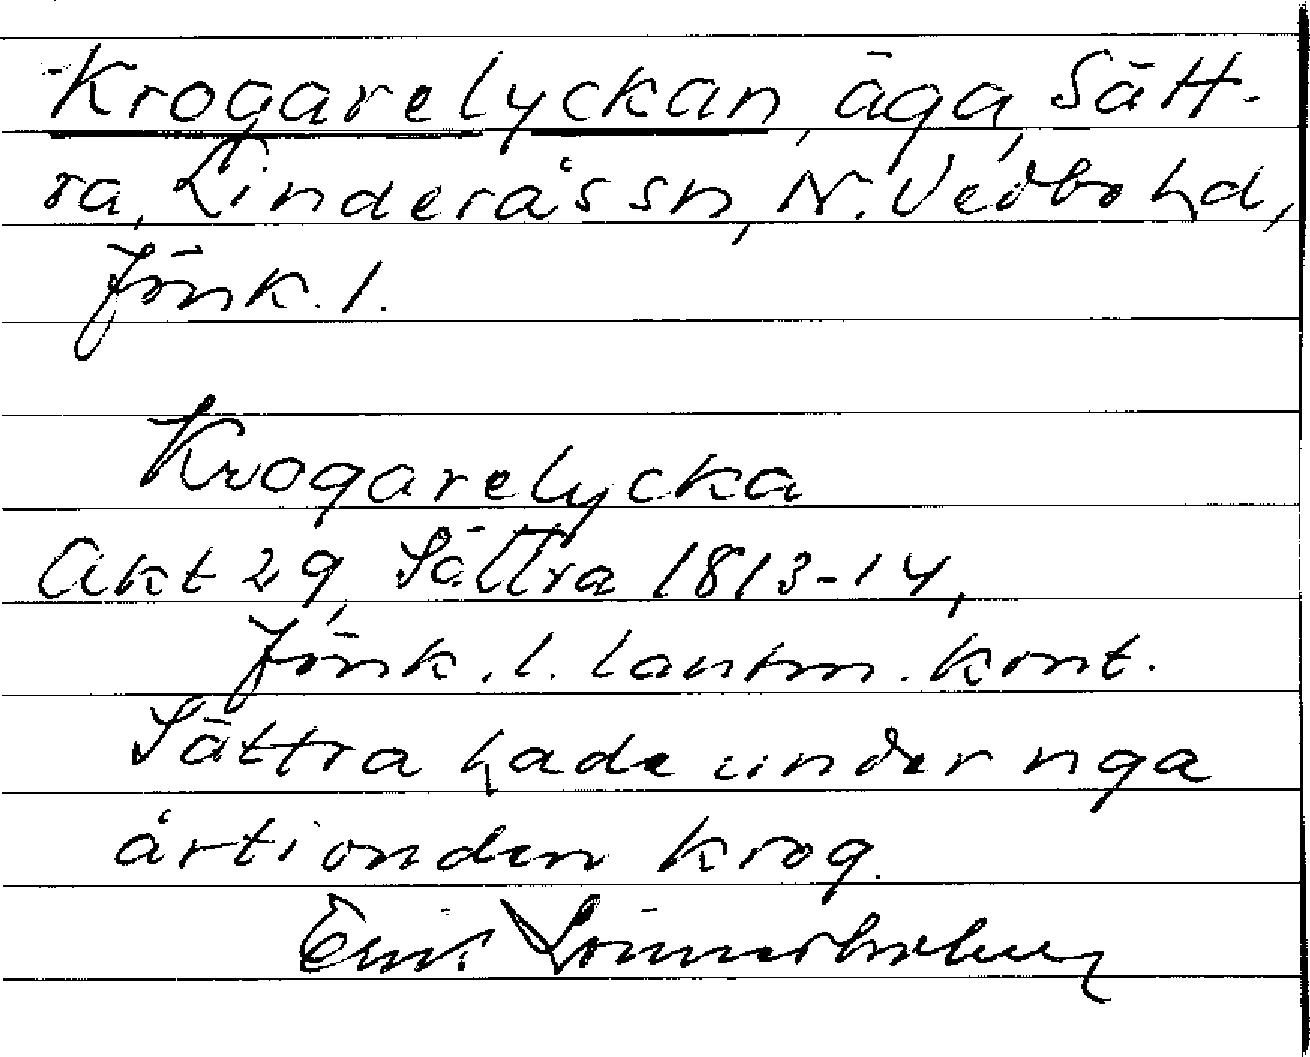 Krogarelyckan, äga, Sätt-
ra, Linderås sn, N. Vedbo hd,
Jönk. l.
Krogarelycka
Akt 29, Sättra 1813-14,
Jönk. l. lantm. kont.
Sättra hade under nga
årtionden krog.